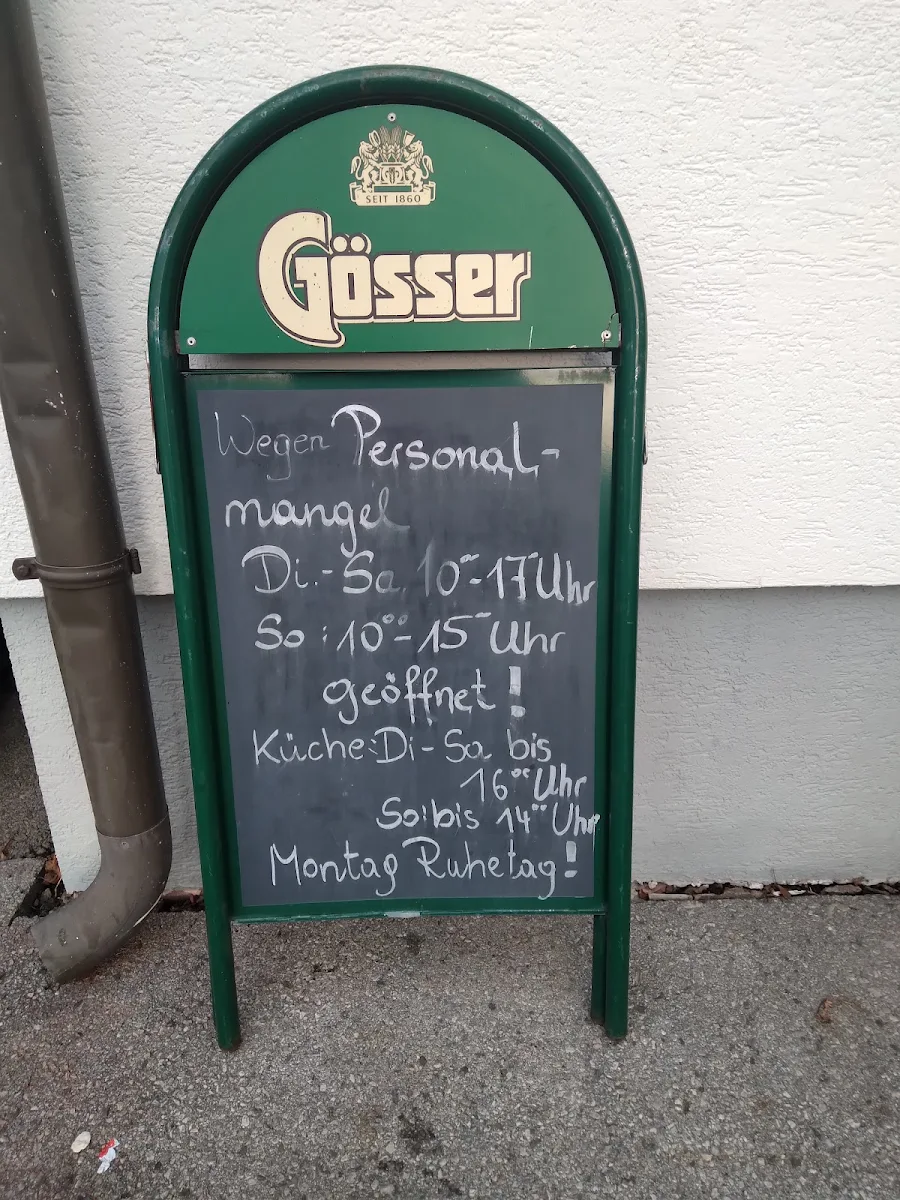 SEIT 1860
Gösser
Wegen Personal-
mangel
Di.-Sa 10⁰⁰-17⁰⁰Uhr
So: 10⁰⁰-15⁰⁰Uhr
geöffnet!
Küche: Di-Sa bis
16⁰⁰Uhr
So: bis 14⁰⁰Uhr
Montag Ruhetag!